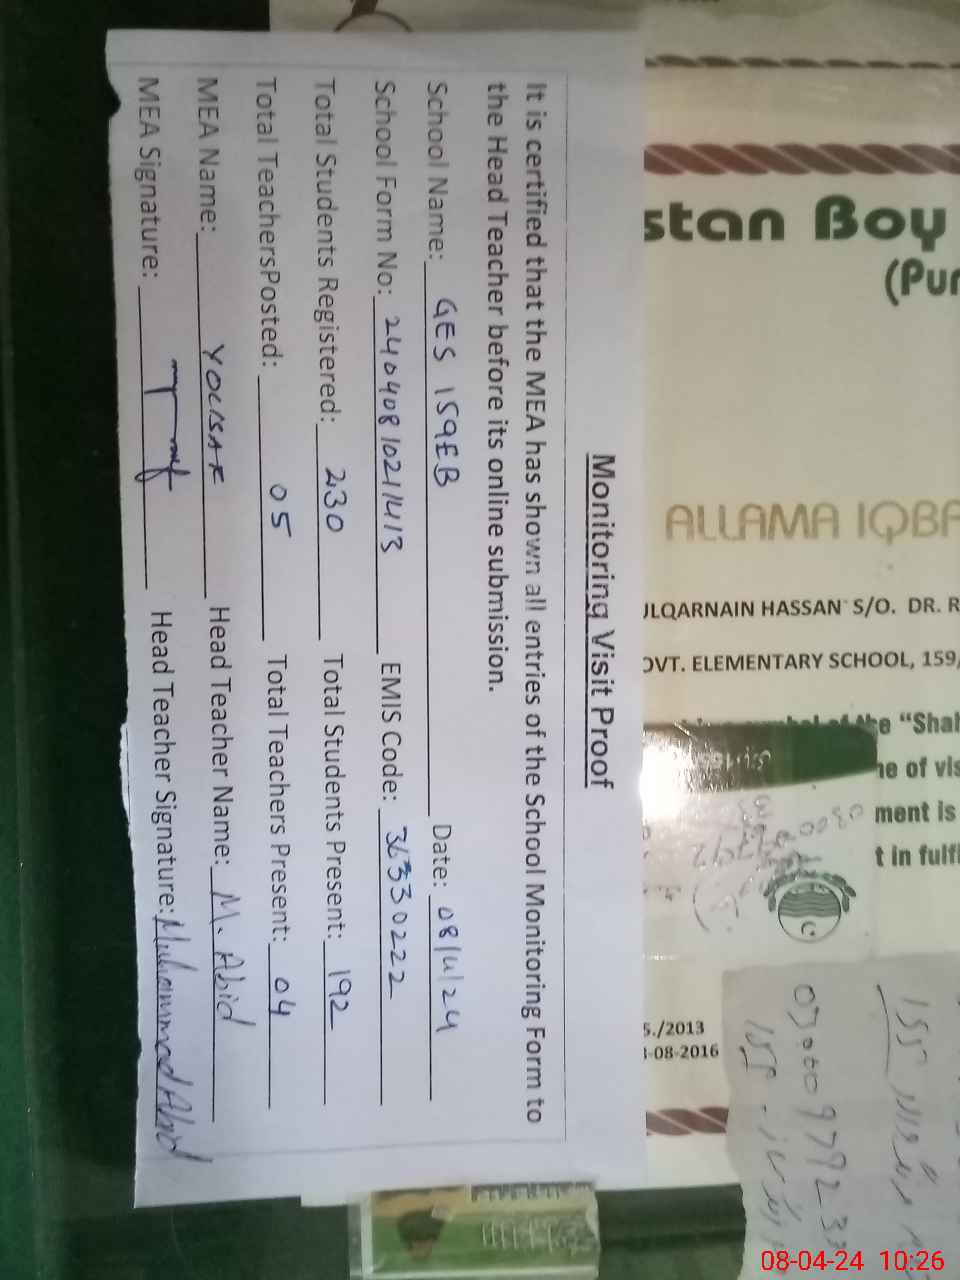 Monitoring Visit Proof
It is certified that the MEA has shown all entries of the School Monitoring Form to
the Head Teacher before its online submission.
School Name: GES 159EB Date: 08/4/24
School Form No: 24040810211413 EMIS Code: 36330222
Total Students Registered: 230 Total Students Present: 192
Total TeachersPosted: 05 Total Teachers Present: 04
MEA Name: Head Teacher Name: M. Abid
MEA Signature: Head Teacher Signature: Muhammad Abid
stan Boy
(Pun
ALLAMA IQBA
ULQARNAIN HASSAN S/O. DR. R
OVT. ELEMENTARY SCHOOL, 159/
the "Shah
ne of vis
ment is
t in fulfi
S./2013
-08-2016
08-04-24 10:26